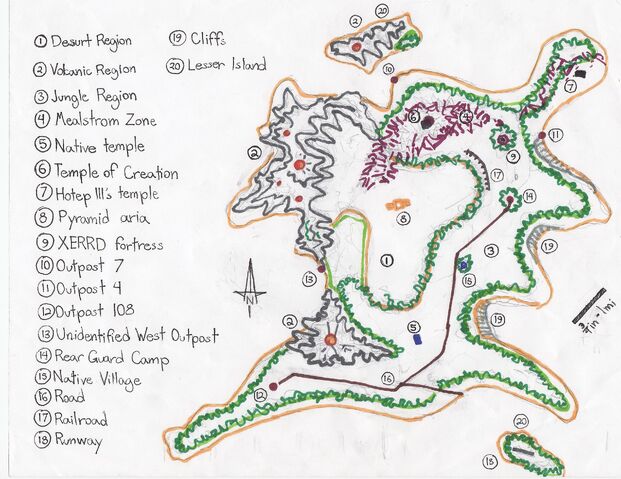 ① Desurt Region
② Volcanic Region
③ Jungle Region
④ Mealstrom Zone
⑤ Native temple
⑥ Temple of Creation
⑦ Hotep III's temple
⑧ Pyramid aria
⑨ XERRD fortress
⑩ Outpost 7
⑪ Outpost 4
⑫ Outpost 108
⑬ Unidentified West Outpost
⑭ Rear Guard Camp
⑮ Native Village
⑯ Road
⑰ Railroad
⑱ Runway
⑲ Cliffs
⑳ Lesser Island
② ⑳
⑩
⑦
⑥ ④
⑪
②
⑨
⑰
⑭
⑧
⑲
③
①
⑬
⑱
N
②
⑤
⑲
in = 1mi
⑯
⑫
⑳
⑱